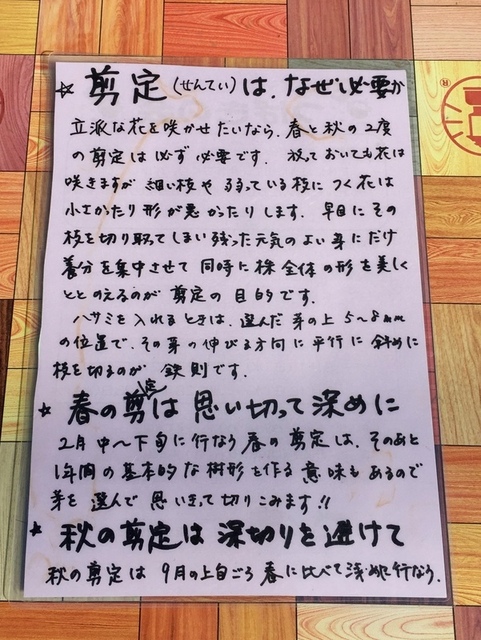 ☆ 剪定(せんてい)は、なぜ必要か
立派な花を咲かせたいなら、春と秋の2度
の剪定は必ず必要です。 放っておいても花は
咲きますが 細い枝や 弱っている枝に つく花は
小さかたり 形が悪かったりします。 早目にその
枝を切り取ってしまい残った元気のよい芽にだけ
養分を集中させて 同時に株全体の形を美しく
ととのえるのが 剪定の目的です。
ハサミを入れるときは、選んだ芽の上 5〜8mm
の位置で、その芽の伸びる方向に平行に 斜めに
枝を切るのが 鉄則です。
☆ 春の剪定は 思い切って深めに
2月中〜下旬に行なう春の剪定は、そのあと
1年間の基本的な樹形を作る意味もあるので
芽を選んで 思いきって切りこみます!!
★ 秋の剪定は 深切りを避けて
秋の剪定は 9月の上旬ごろ 春に比べて浅めに行なう。
®